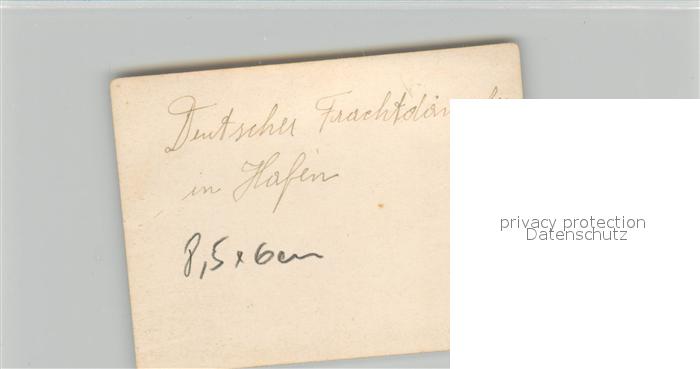 Deutscher Frachtdampfer
in Hafen
8,5x6cm
privacy protection
Datenschutz